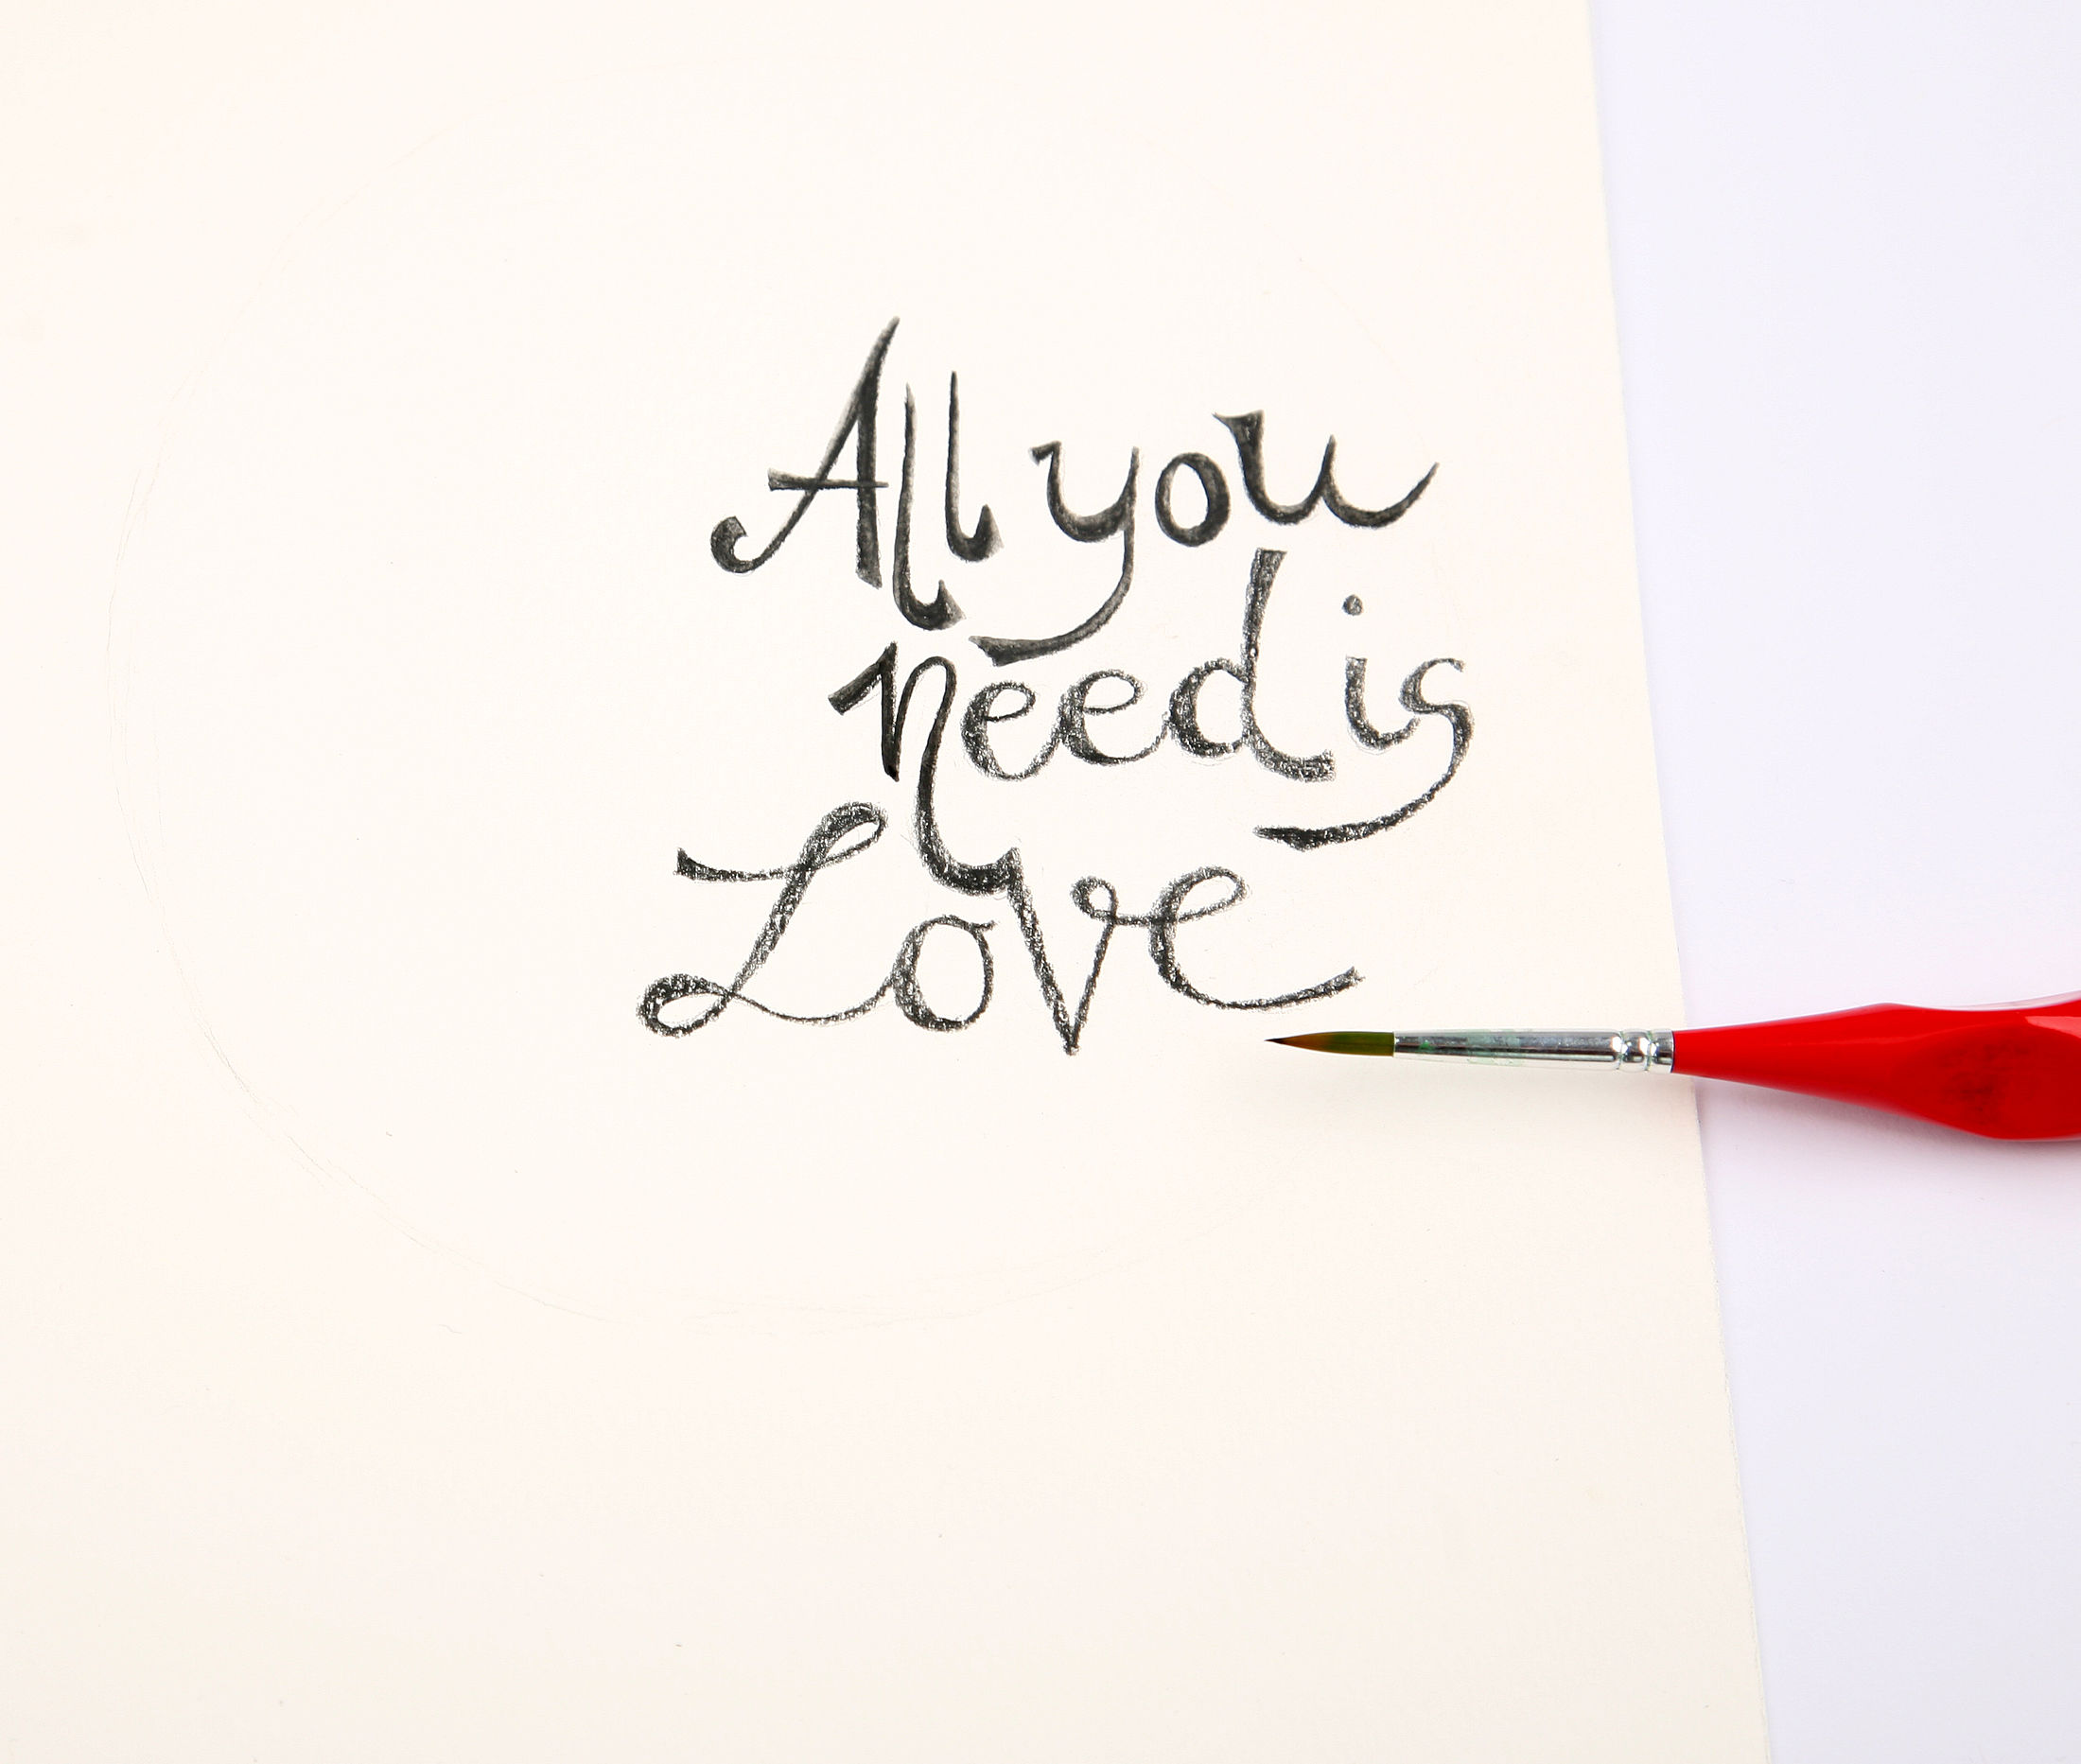 All you
need is
Love